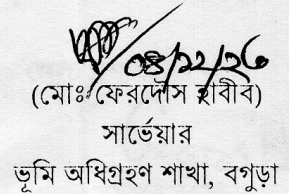 ০৪/১২/২৩
(মোঃ ফেরদৌস হাবীব)
সার্ভেয়ার
ভূমি অধিগ্রহণ শাখা, বগুড়া